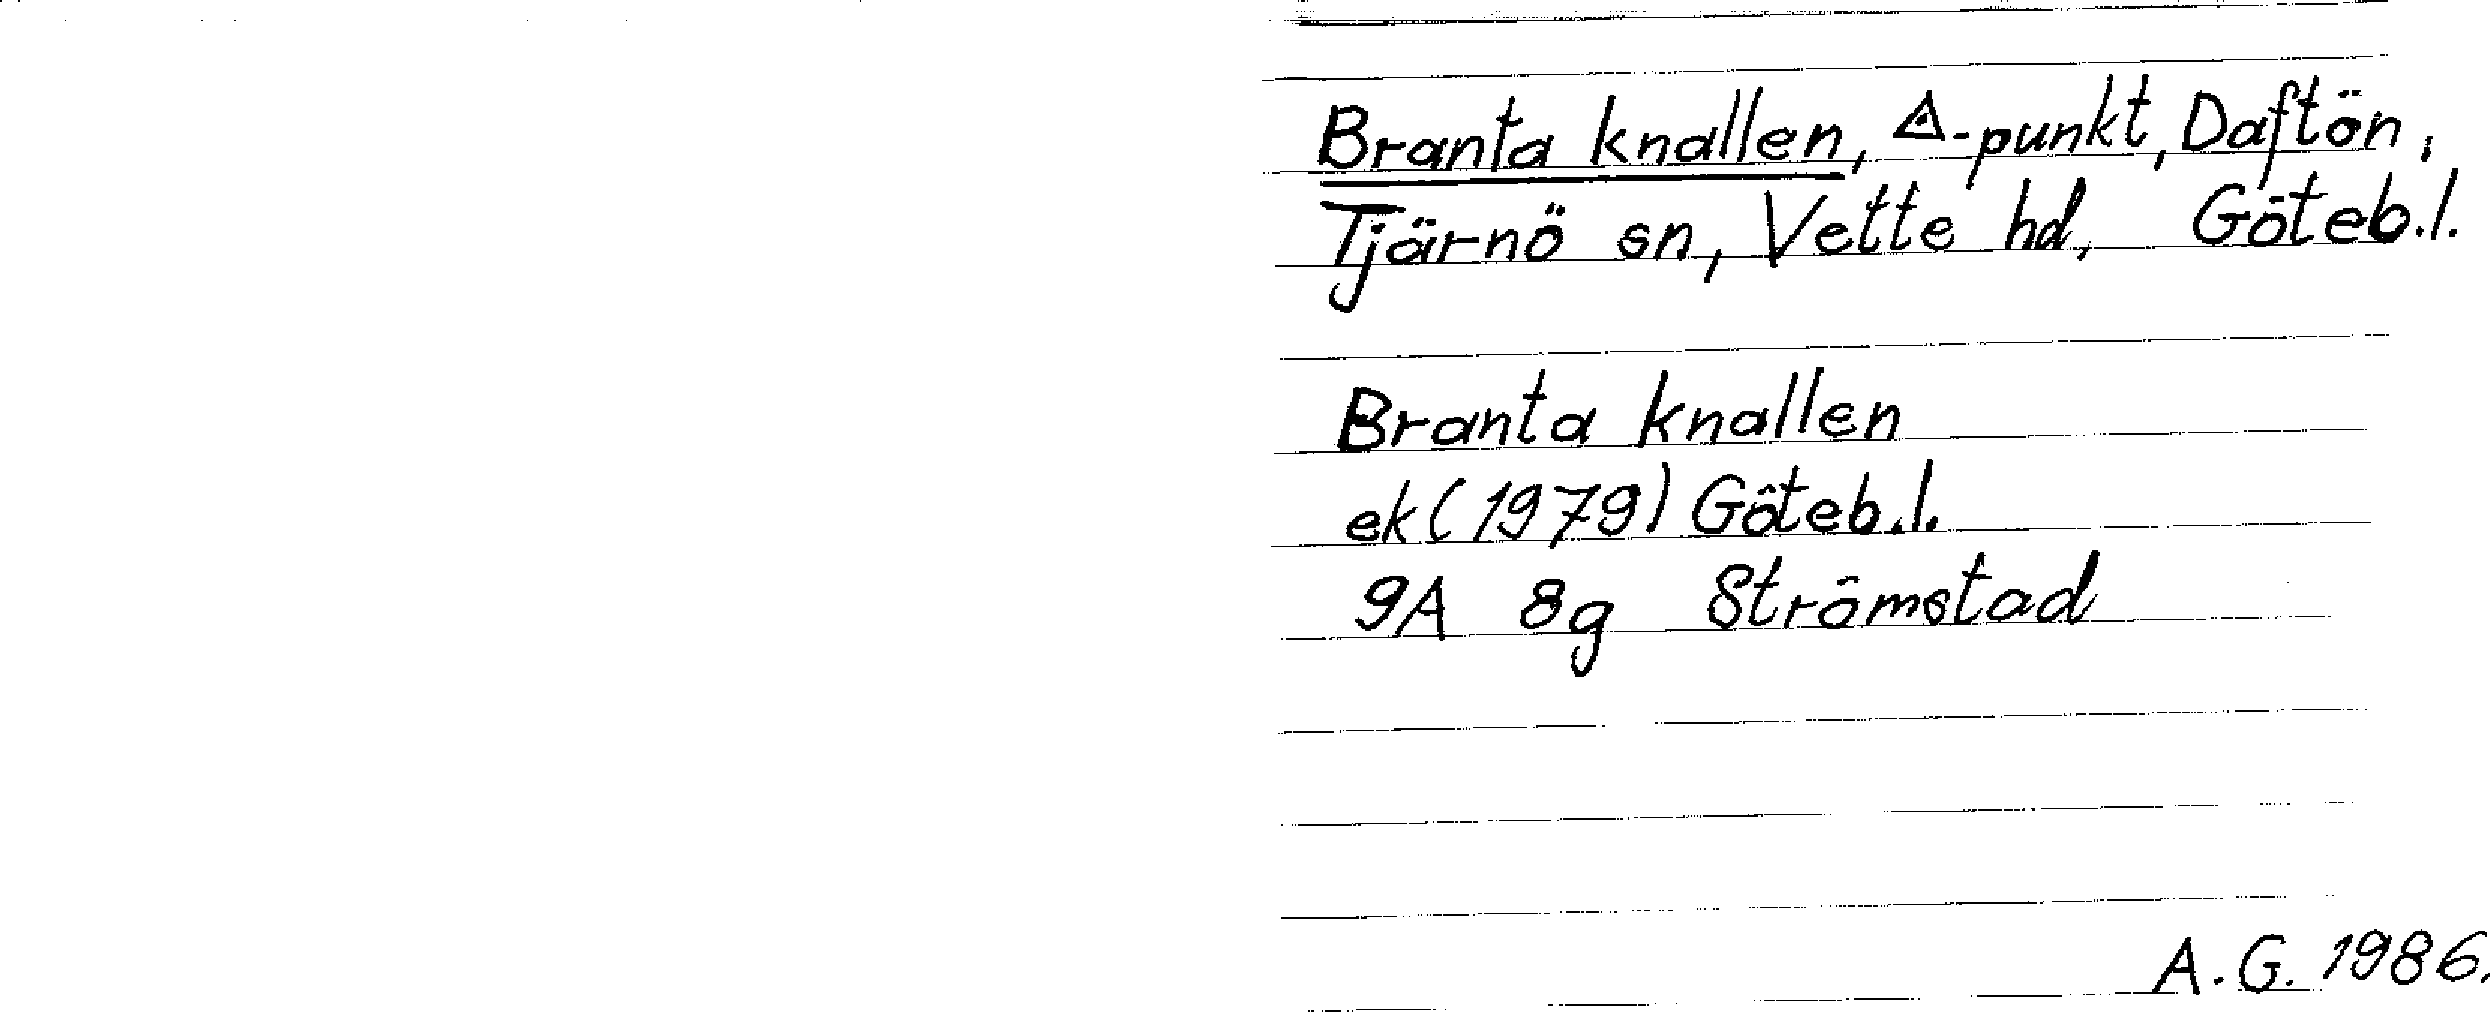 Branta knallen, ◬-punkt, Daftön,
Tjärnö sn, Vette hd, Göteb.l.
Branta knallen
ek (1979) Göteb.l.
9A 8g Strömstad
A.G. 1986.